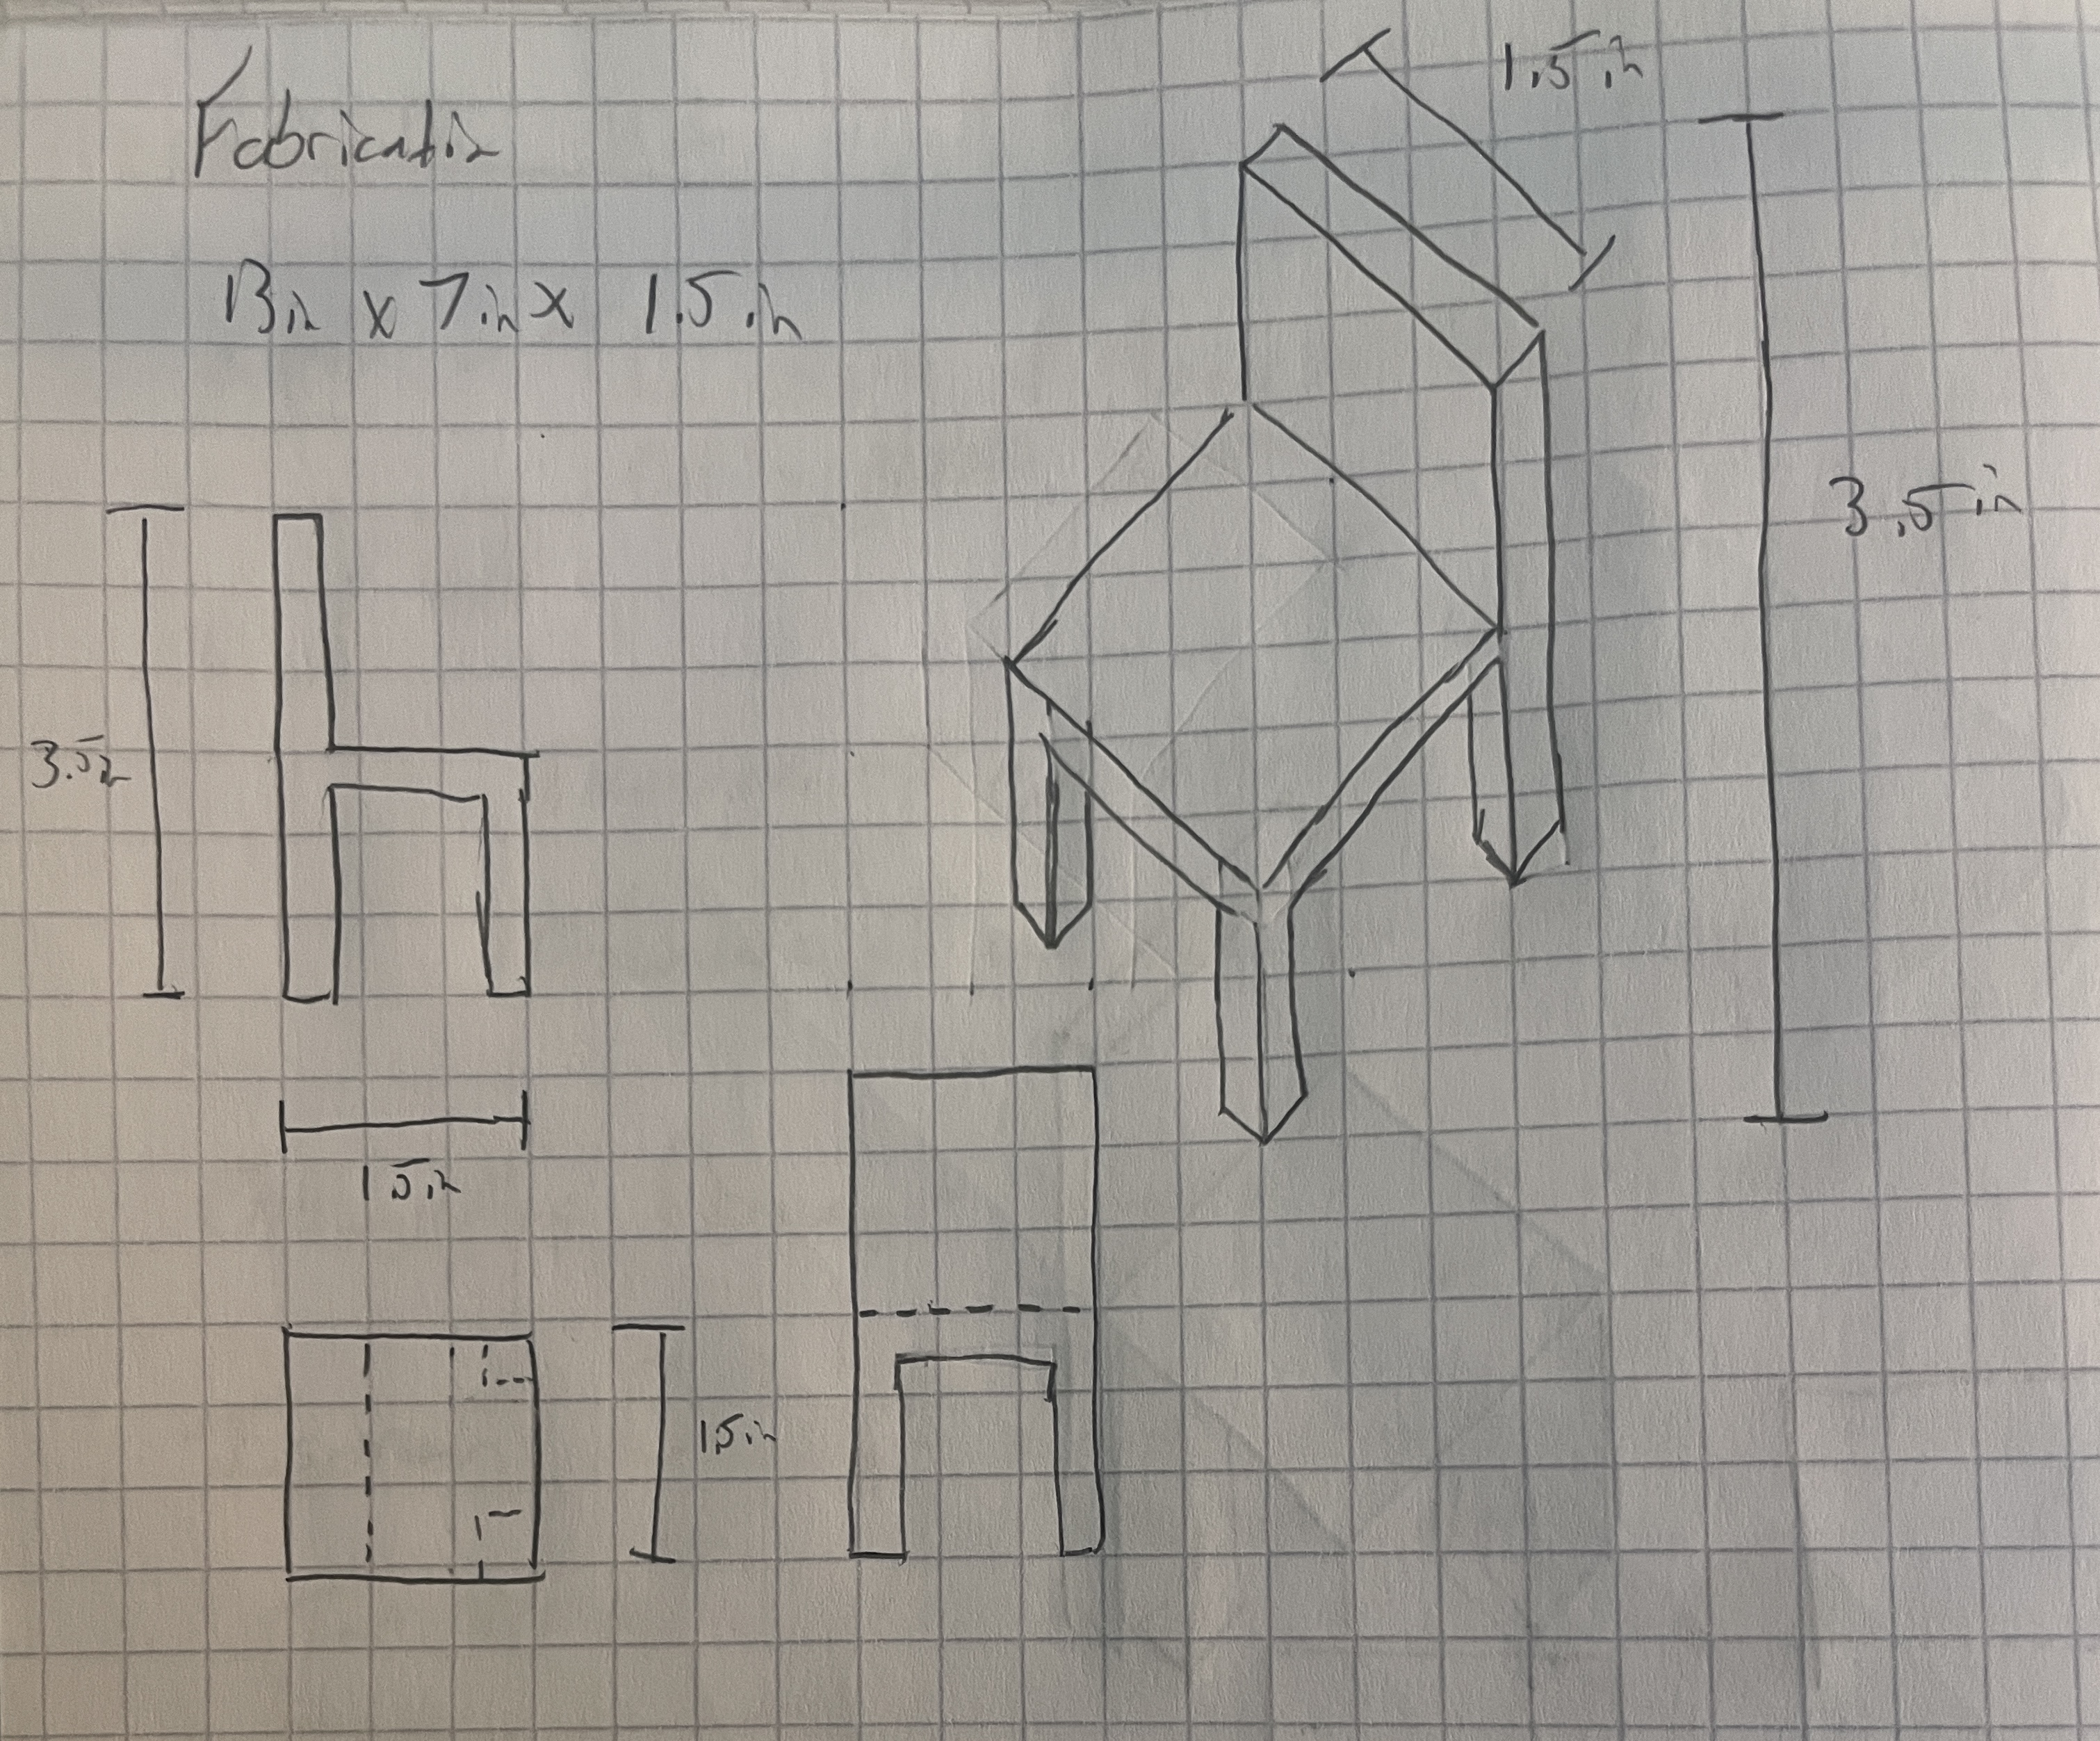 Fabricatin
13in x 7in x 1.5in
1.5in
3.5in
3.5in
1.5in
1.5in